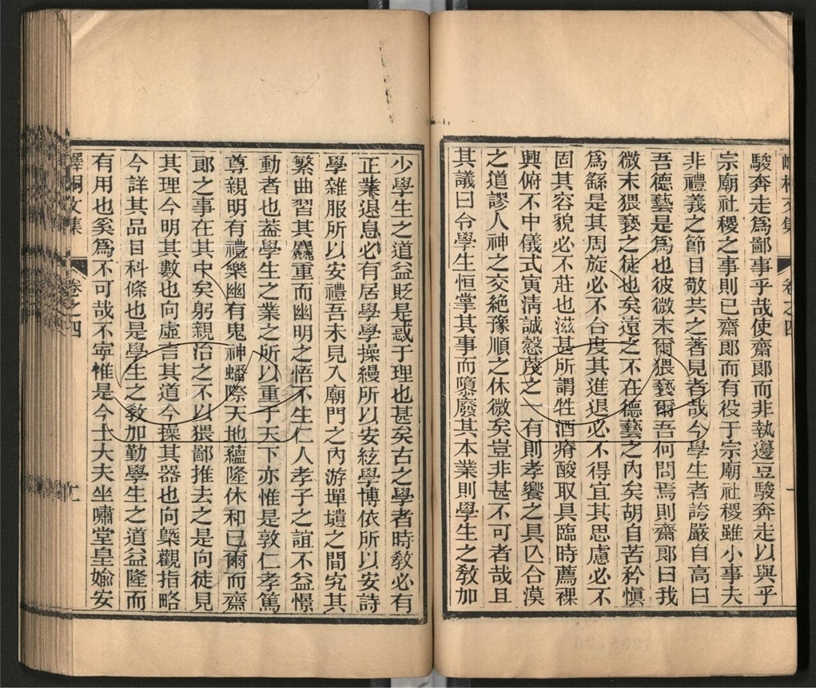 嶧桐文集 卷之四
駿奔走爲鄙事乎哉使齋郎而非執籩豆駿奔走以與乎
宗廟社稷之事則已齋郎而有役于宗廟社稷雖小事夫
非禮義之節目敬共之著見者哉今學生者誇嚴自高曰
吾德藝是爲也彼微末爾猥褻爾吾何問焉則齋郎曰我
微末猥褻之徒也矣遠之不在德藝之內矣胡自苦矜愼
爲繇是其周旋必不台度其進退必不得宜其思慮必不
固其容貌必不莊也滋甚所謂牲酒瘠酸取具臨時薦祼
興俯不中儀式寅清誠慤茂之一有則孝饗之具仄台漠
之道謬人神之交絶豫順之休微矣豈非甚不可者哉且
其議曰令學生恒掌其事而隳廢其本業則學生之敎加
少學生之道益貶是惑于理也甚矣古之學者時敎必有
正業退息必有居學學操縵所以安絃學博依所以安詩
學雜服所以安禮吾未見入廟門之內游墠壝之間究其
繁曲習其麤重而幽明之悟不生仁人孝子之誼不益憬
動者也葢學生之業之所以重于天下亦惟是敦仁孝篤
尊親明有禮樂幽有鬼神蟠際天地蘊隆休和已爾而齋
郎之事在其中矣躬親治之不以猥鄙推去之是向徒見
其理今明其數也向虛言其道今操其器也向槩觀指略
今詳其品目科條也是學生之敎加勤學生之道益隆而
有用也奚爲不可哉不寧惟是今士大夫坐嘯堂皇媮安
嶧桐文集 卷之四